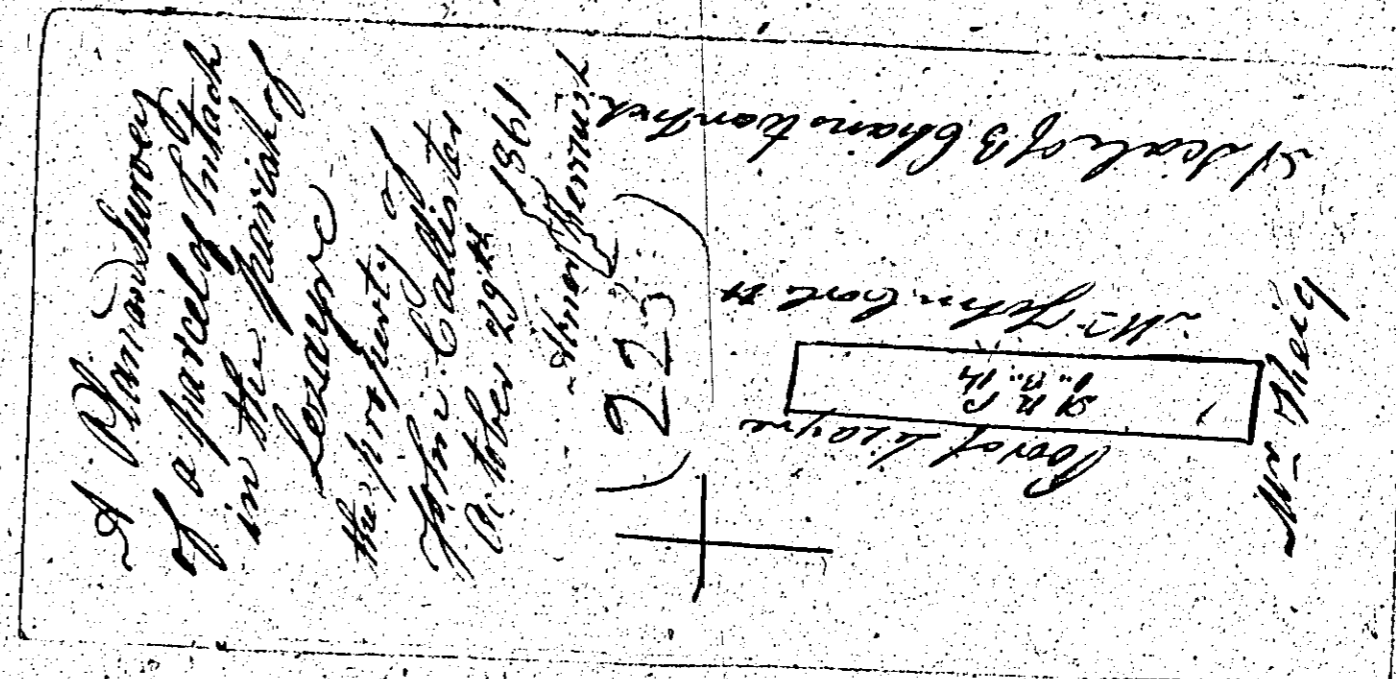 A Plan and Survey
of a parcel of Intack
in the parish of
Lezayre
the property of
John Callister
October 29th 1861
(223)
A Scale of 3 Chains to an Inch
Mr John
A R P
Poor of Lezayre
Mr